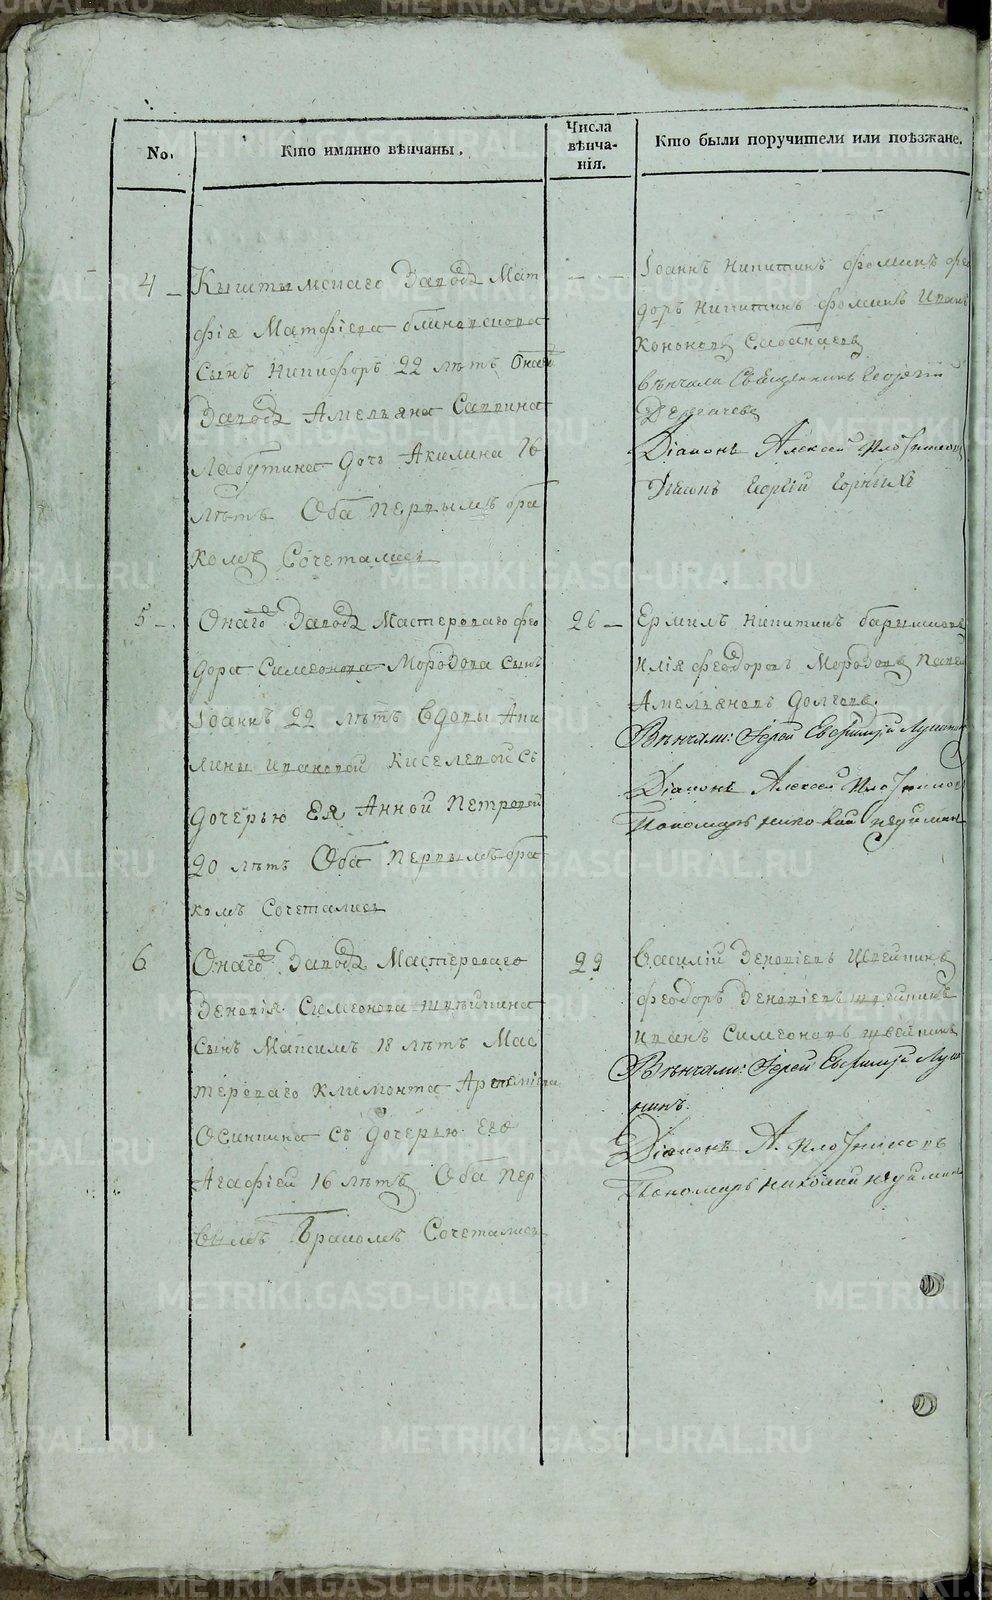 No.
Кто имянно вѣнчаны.
Числа вѣнча-
нія.
Кто были поручители или поѣзжане.
4
Кыштымскаго Завода Мат
фія Матфіева
сынъ Никифоръ 22 лѣтъ Онаго
Завода Амельяна Саввина
Лабутина дочь Акилина 16
лѣтъ Оба первымъ бра
комъ Сочетались
Іоаннъ Никитинъ Фоминъ Фео
доръ Никитинъ Фоминъ Иванъ
Кононовъ
вѣнчали Священникъ Георгій
Діаконъ Алексей Плотников
Дьякон Георгій Горныхъ
5
Онаго Завода Мастероваго Фео
дора Симеонова Морозова сынъ
Іоаннъ 22 лѣтъ вдовы Аки
лины Ивановой Киселевой съ
дочерью Ея Анной Петровой
20 лѣтъ Оба первымъ бра
комъ Сочетались
26
Ермилъ Никитинъ
Илія Феодоровъ Морозовъ Павел
Амельяновъ Долговъ.
Вѣнчали: Іерей Евѳимій Лукан
Діаконъ Алексей Плотников
Пономарь Николай
6
Онаго Завода Мастероваго
Зеновія Симеонова Швейкина
Сынъ Максимъ 18 лѣтъ Мас
тероваго Климонта Артемьева
Осинкина съ дочерью его
Агафіей 16 лѣтъ Оба пер
вымъ Бракомъ Сочетались
29
Василій Зеновіевъ Швейкинъ
Феодоръ Зеновіевъ Швейкинъ
Иванъ Симеоновъ Швейкинъ
Вѣнчали: Іерей Евѳимій Лука
нинъ.
Діаконъ А. Плотниковъ
Пономарь Николай
METRIKI.GASO-URAL.RU